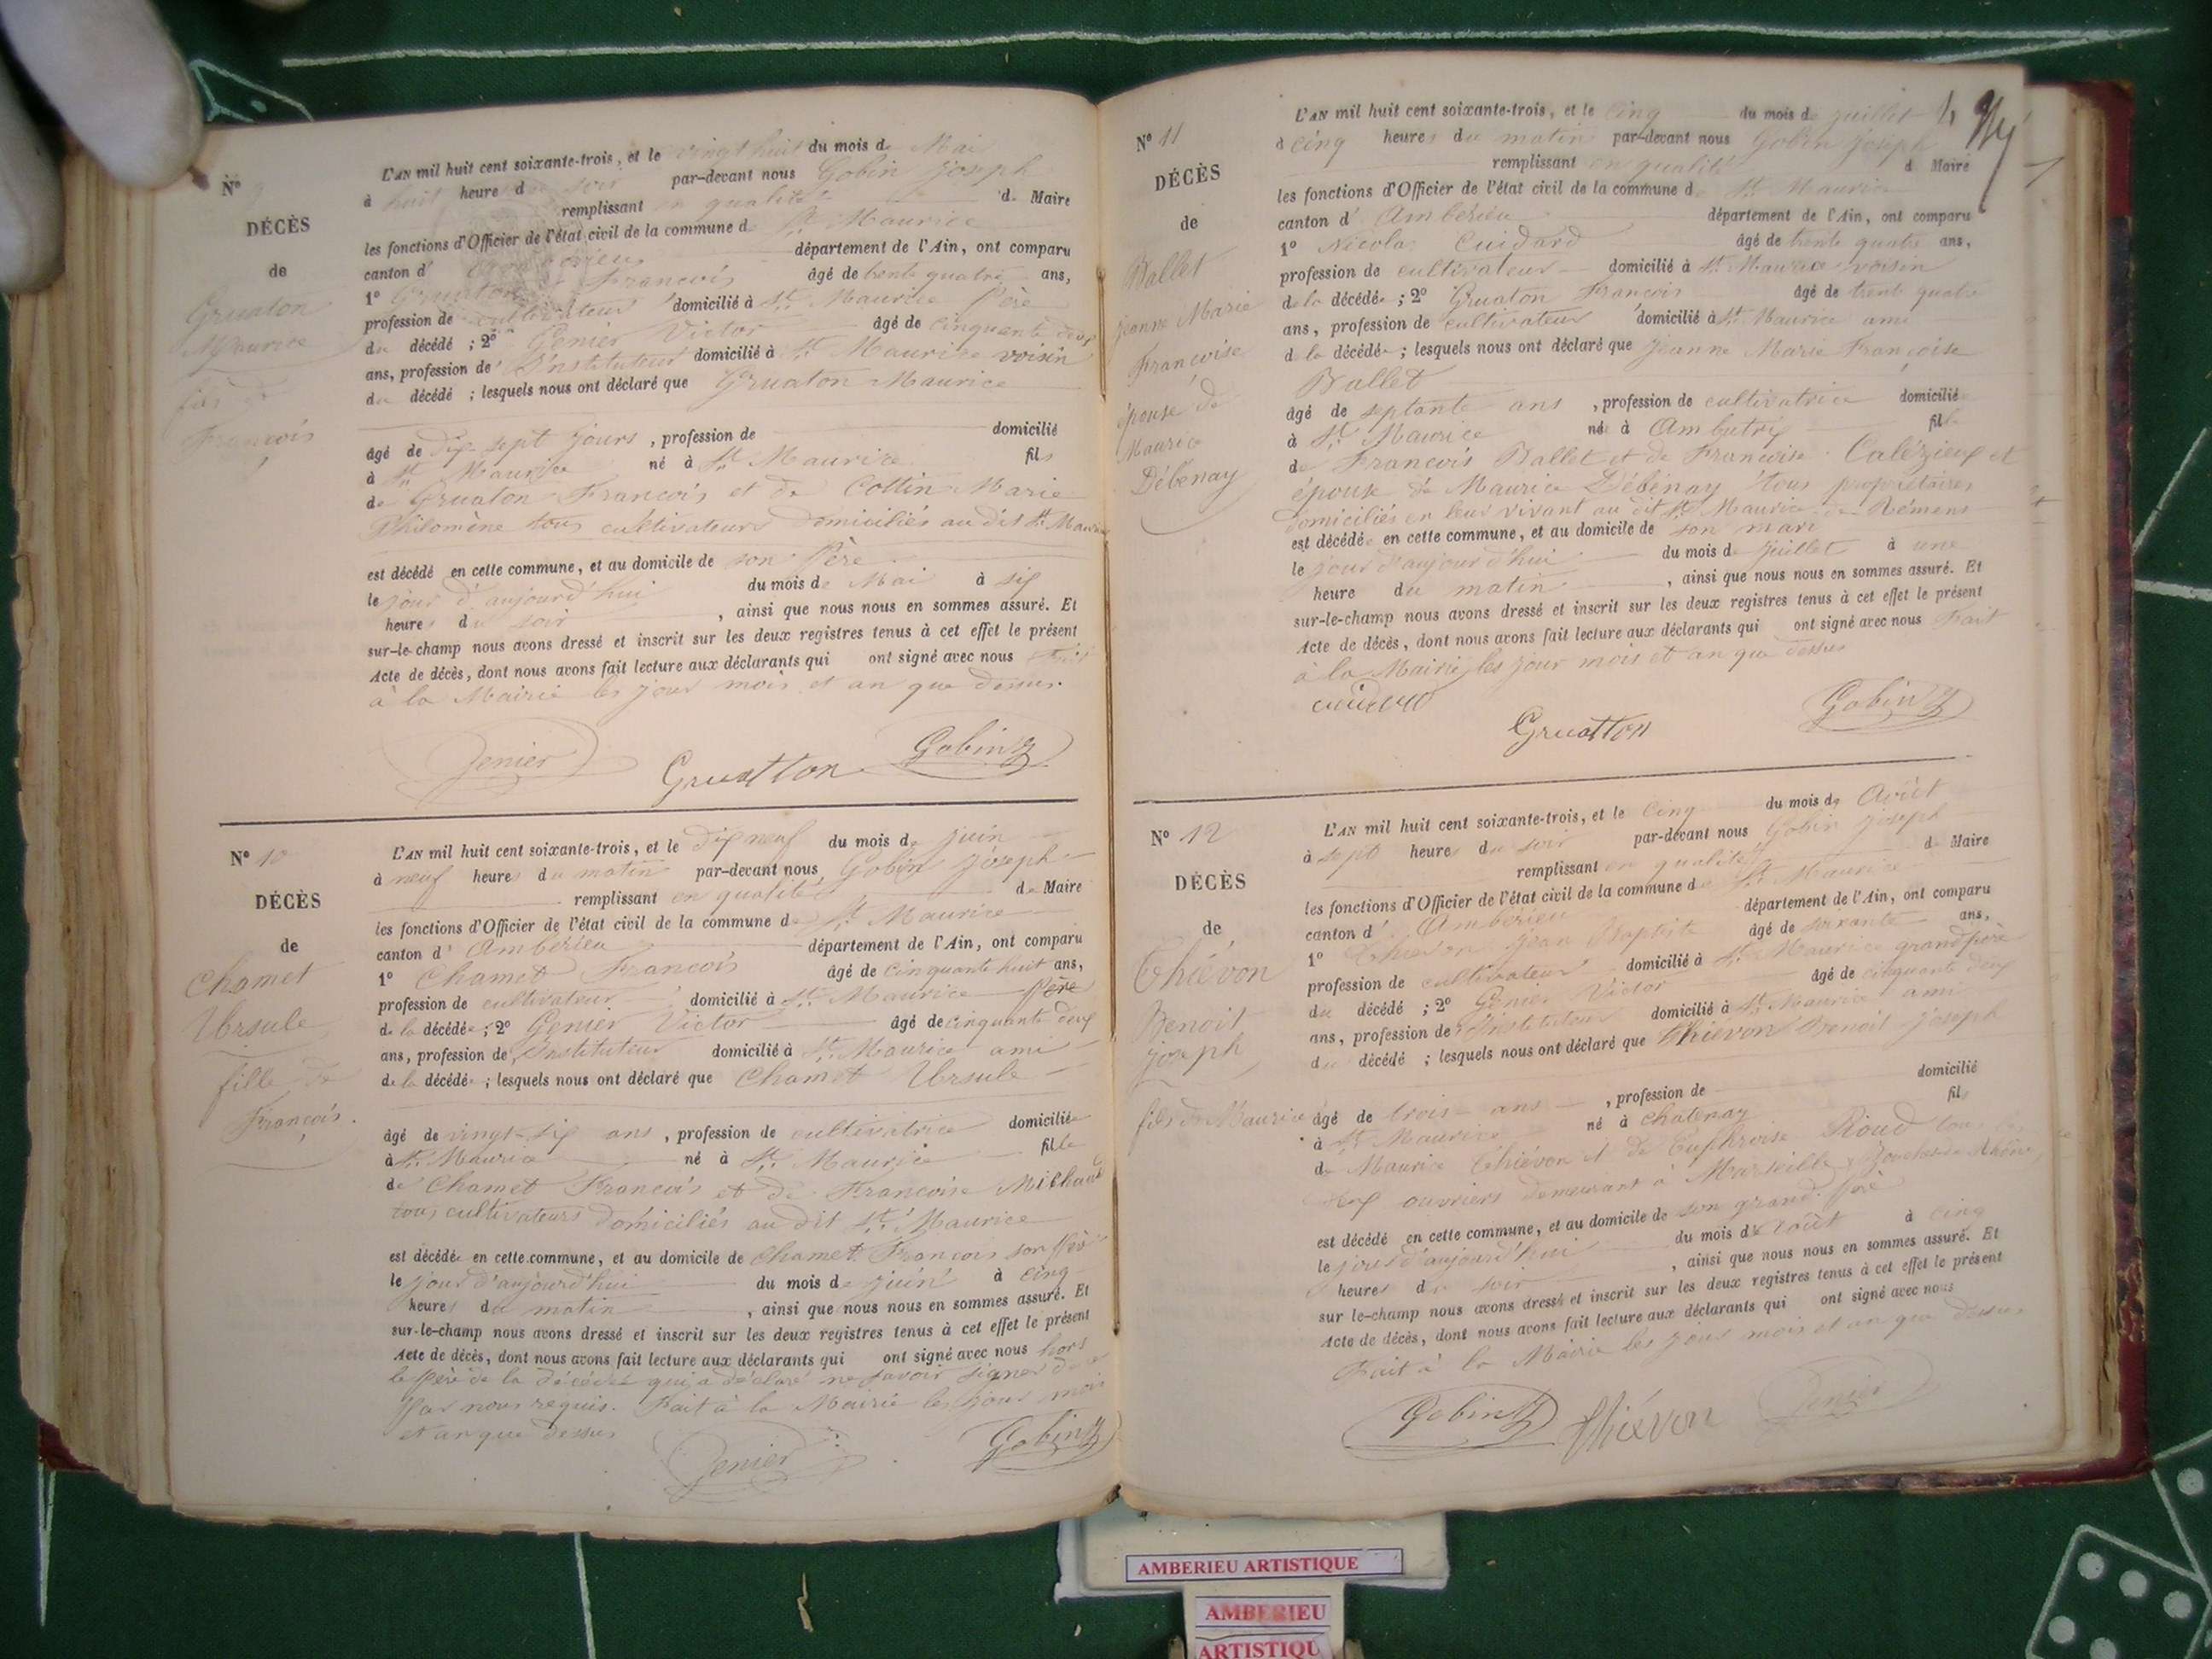 N° 9
DÉCÈS
de
Gruaton
Maurice
fils de
François
L'AN mil huit cent soixante-trois, et le vingt huit du mois de Mai
à huit heure du soir par-devant nous Gobin Joseph
remplissant en qualité de Maire
les fonctions d'Officier de l'état civil de la commune de St Maurice
canton d' département de l'Ain, ont comparu
1° Gruaton François âgé de trente quatre ans,
profession de cultivateur domicilié à St Maurice Père
du décédé ; 2° Genier Victor âgé de cinquante deux
ans, profession de Instituteur domicilié à St Maurice voisin
du décédé ; lesquels nous ont déclaré que Gruaton Maurice
âgé de dix sept jours , profession de domicilié
à St Maurice né à St Maurice fils
de Gruaton François et de Cottin Marie
Philomène tous cultivateurs domiciliés au dit St Maurice
est décédé en cette commune, et au domicile de son Père
le jour d'aujourd'hui du mois de Mai à six
heures du soir , ainsi que nous nous en sommes assuré. Et
sur-le-champ nous avons dressé et inscrit sur les deux registres tenus à cet effet le présent
Acte de décès, dont nous avons fait lecture aux déclarants qui ont signé avec nous Fait
à la Mairie les jour mois et an que dessus.
Genier Gruatton Gobin
N° 10
DÉCÈS
de
Chamet
Ursule
fille de
François.
L'AN mil huit cent soixante-trois, et le dix neuf du mois de juin
à neuf heures du matin par-devant nous Gobin Joseph
remplissant en qualité de Maire
les fonctions d'Officier de l'état civil de la commune de St Maurice
canton d' Ambérieu département de l'Ain, ont comparu
1° Chamet François âgé de cinquante huit ans,
profession de cultivateur domicilié à St Maurice Père
de la décédée ; 2° Genier Victor âgé de cinquante deux
ans, profession de Instituteur domicilié à St Maurice ami
de la décédée ; lesquels nous ont déclaré que Chamet Ursule
âgé de vingt-six ans , profession de cultivatrice domiciliée
à St Maurice né à St Maurice fille
de Chamet François et de Françoise Michaud
tous cultivateurs domiciliés au dit St Maurice
est décédée en cette commune, et au domicile de Chamet François son Père
le jour d'aujourd'hui du mois de juin à cinq
heures du matin , ainsi que nous nous en sommes assuré. Et
sur-le-champ nous avons dressé et inscrit sur les deux registres tenus à cet effet le présent
Acte de décès, dont nous avons fait lecture aux déclarants qui ont signé avec nous hors
le père de la décédée qui a déclaré ne savoir signer de ce
par nous requis. Fait à la Mairie les jour mois
et an que dessus
Genier Gobin
N° 11
DÉCÈS
de
Ballet
Jeanne Marie
Françoise
épouse de
Maurice
Débenay
L'AN mil huit cent soixante-trois, et le cinq du mois de juillet
à cinq heures du matin par-devant nous Gobin Joseph
remplissant en qualité de Maire
les fonctions d'Officier de l'état civil de la commune de St Maurice
canton d' Ambérieu département de l'Ain, ont comparu
1° Nicolas Cuidard âgé de trente quatre ans,
profession de cultivateur domicilié à St Maurice voisin
de la décédée ; 2° Gruaton François âgé de trente quatre
ans, profession de cultivateur domicilié à St Maurice ami
de la décédée ; lesquels nous ont déclaré que Jeanne Marie Françoise
Ballet
âgé de septante ans , profession de cultivatrice domiciliée
à St Maurice née à Ambutrix fille
de François Ballet et de Françoise Calézieux et
épouse de Maurice Débenay tous propriétaires
domiciliés en leur vivant au dit St Maurice de Rémens
est décédée en cette commune, et au domicile de son mari
le jour d'aujourd'hui du mois de juillet à une
heure du matin , ainsi que nous nous en sommes assuré. Et
sur-le-champ nous avons dressé et inscrit sur les deux registres tenus à cet effet le présent
Acte de décès, dont nous avons fait lecture aux déclarants qui ont signé avec nous Fait
à la Mairie les jour mois et an que dessus
Gruatton Gobin
N° 12
DÉCÈS
de
Thiévon
Benoit
Joseph
fils de Maurice
L'AN mil huit cent soixante-trois, et le cinq du mois de Août
à sept heures du soir par-devant nous Gobin Joseph
remplissant en qualité de Maire
les fonctions d'Officier de l'état civil de la commune de St Maurice
canton d' Ambérieu département de l'Ain, ont comparu
1° Thiévon Jean Baptiste âgé de soixante ans,
profession de cultivateur domicilié à St Maurice grand père
du décédé ; 2° Genier Victor âgé de cinquante deux
ans, profession de Instituteur domicilié à St Maurice ami
du décédé ; lesquels nous ont déclaré que Thiévon Benoit Joseph
âgé de trois ans , profession de domicilié
à St Maurice né à Chatenay fils
de Maurice Thiévon et de Euphroise Rioud tous
deux ouvriers demeurant à Marseille Bouches-du-Rhône
est décédé en cette commune, et au domicile de son grand Père
le jour d'aujourd'hui du mois de Août à cinq
heures du soir , ainsi que nous nous en sommes assuré. Et
sur le-champ nous avons dressé et inscrit sur les deux registres tenus à cet effet le présent
Acte de décès, dont nous avons fait lecture aux déclarants qui ont signé avec nous
Fait à la Mairie les jour mois et an que dessus
Gobin Thiévon Genier
AMBERIEU ARTISTIQUE
AMBERIEU
ARTISTIQU